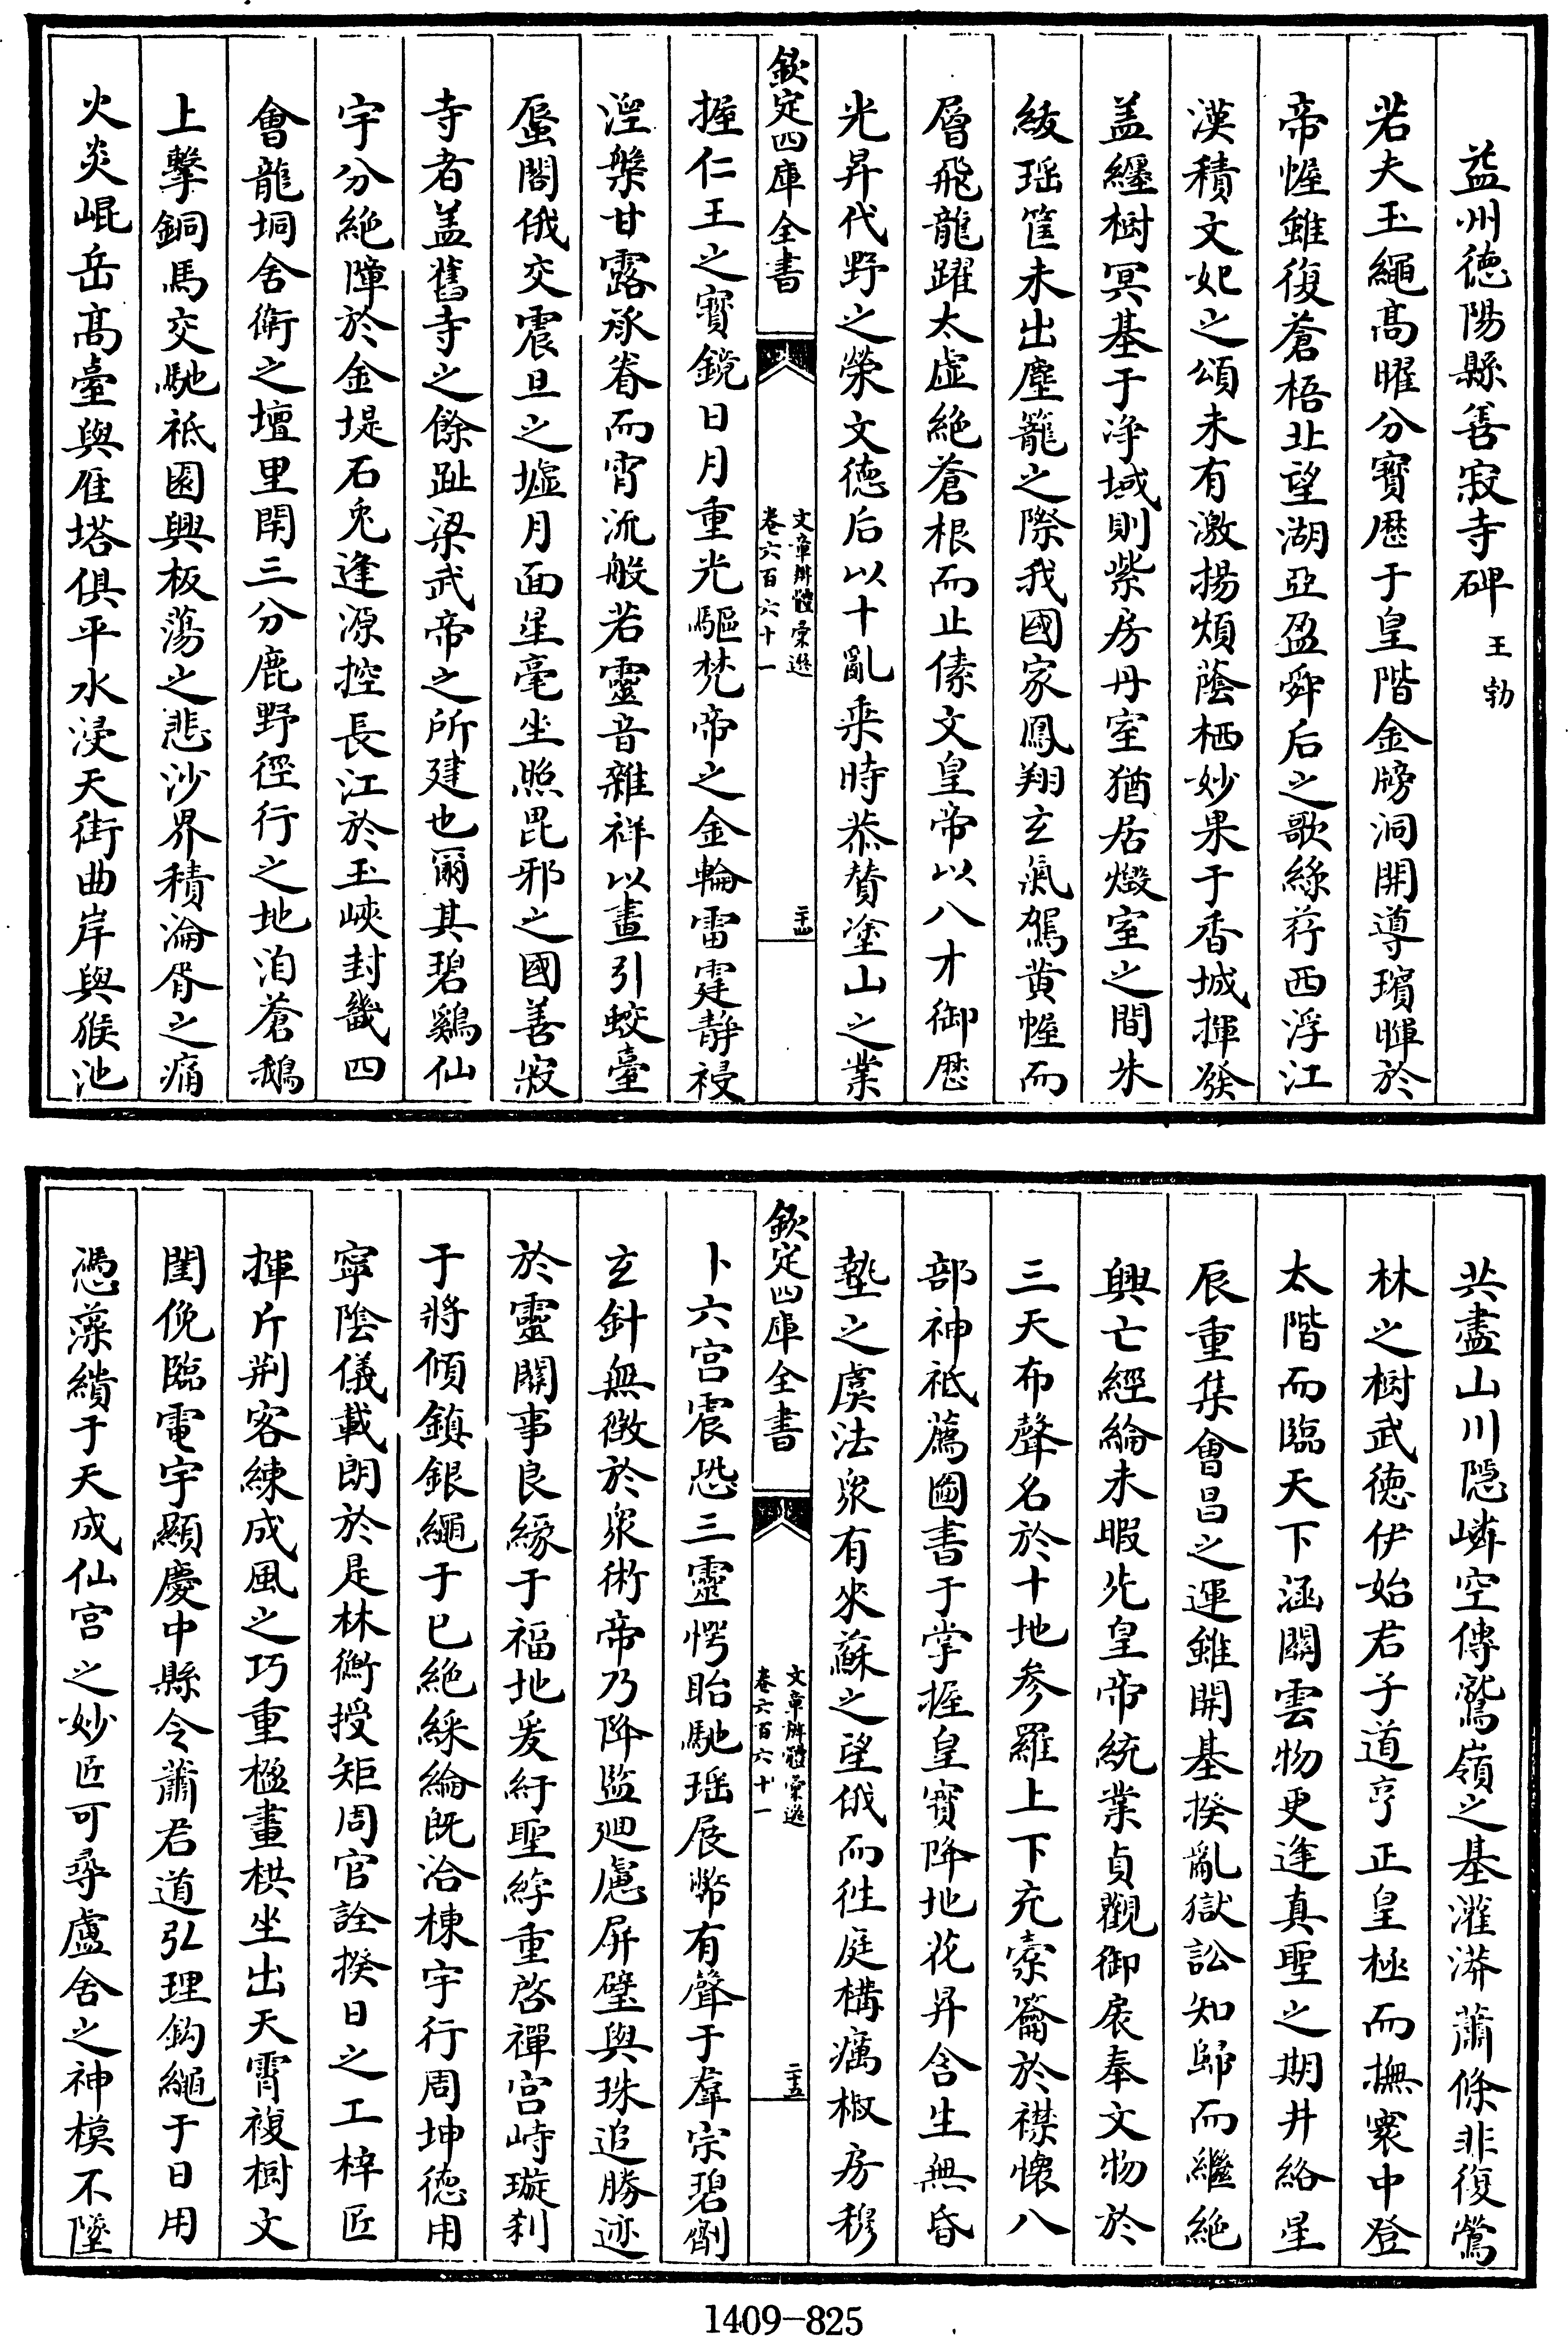 益州徳陽縣善寂寺碑 王勃
若夫玉繩髙曜分寳歴于皇階金牓洞開導璸暉於
帝幄雖復蒼梧北望湖亞盈舜后之歌絲荇西浮江
漢積文妃之頌未有激揚煩蔭栖妙果于香城揮發
盖纒樹冥基于浄域則紫房丹室猶居燬室之間朱
紱瑶筐未出塵籠之際我國家鳳翔玄氣駕黄幄而
層飛龍躍太虚絶蒼根而止傃文皇帝以八才御歴
光昇代野之榮文徳后以十亂乘時恭賛塗山之業
欽定四庫全書
文章辨體彚選
卷六百六十一
二十四
握仁王之寳鏡日月重光驅梵帝之金輪雷霆静祲
湼槃甘露承眷而宵流般若靈音雜祥以晝引蛟臺
蜃閣俄交震旦之墟月面星毫坐照毘邪之國善寂
寺者盖舊寺之餘趾梁武帝之所建也爾其碧鷄仙
宇分絶障於金堤石兎逢源控長江於玉峽封畿四
會龍垌舍衛之壇里閈三分鹿野徑行之地洎蒼鵝
上擊銅馬交馳祗園興板蕩之悲沙界積淪胥之痛
火炎崐岳髙臺與雁塔俱平水浸天街曲岸與猴池
共盡山川隠嶙空傳鷲嶺之基灌漭蕭條非復鶯
林之樹武徳伊始君子道亨正皇極而撫寰中登
太階而臨天下涵關雲物更逢真聖之期井絡星
辰重集會昌之運雖開基揆亂獄訟知歸而繼絶
興亡經綸未暇先皇帝統業貞觀御扆奉文物於
三天布聲名於十地参羅上下充索籥於襟懐八
部神祗薦圖書于掌握皇寳降地花昇含生無昏
墊之虞法衆有來蘇之望俄而徃庭構癘椒房穆
欽定四庫全書
文章辨體彚選
卷六百六十一
二十五
卜六宫震恐三靈愕眙馳瑶展幣有聲于羣宗碧劑
玄針無徴於衆術帝乃降監廻慮屏璧與珠追勝迹
於靈關事良縁于福地爰紆聖綍重啓禪宫峙璇刹
于將傾鎮銀繩于已絶綵綸既洽棟宇行周坤徳用
寧陰儀載朗於是林衡授矩周官詮揆日之工梓匠
揮斤荆客練成風之巧重楹畫栱坐出天霄複樹文
閨俛臨電宇顯慶中縣令蕭君道弘理鈎繩于日用
憑藻繢于天成仙宫之妙匠可尋盧舍之神模不墜
1409-825